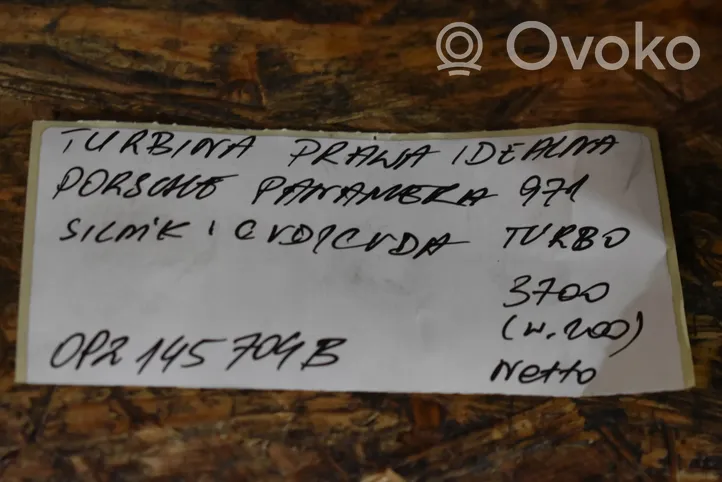 Ovoko
TURBINA PRAWA IDEALNA
PORSCHE PANAMERA 971
SILNIK : CVD/CVDA TURBO
3700
(W.200)
Netto
OP2 145 704 B